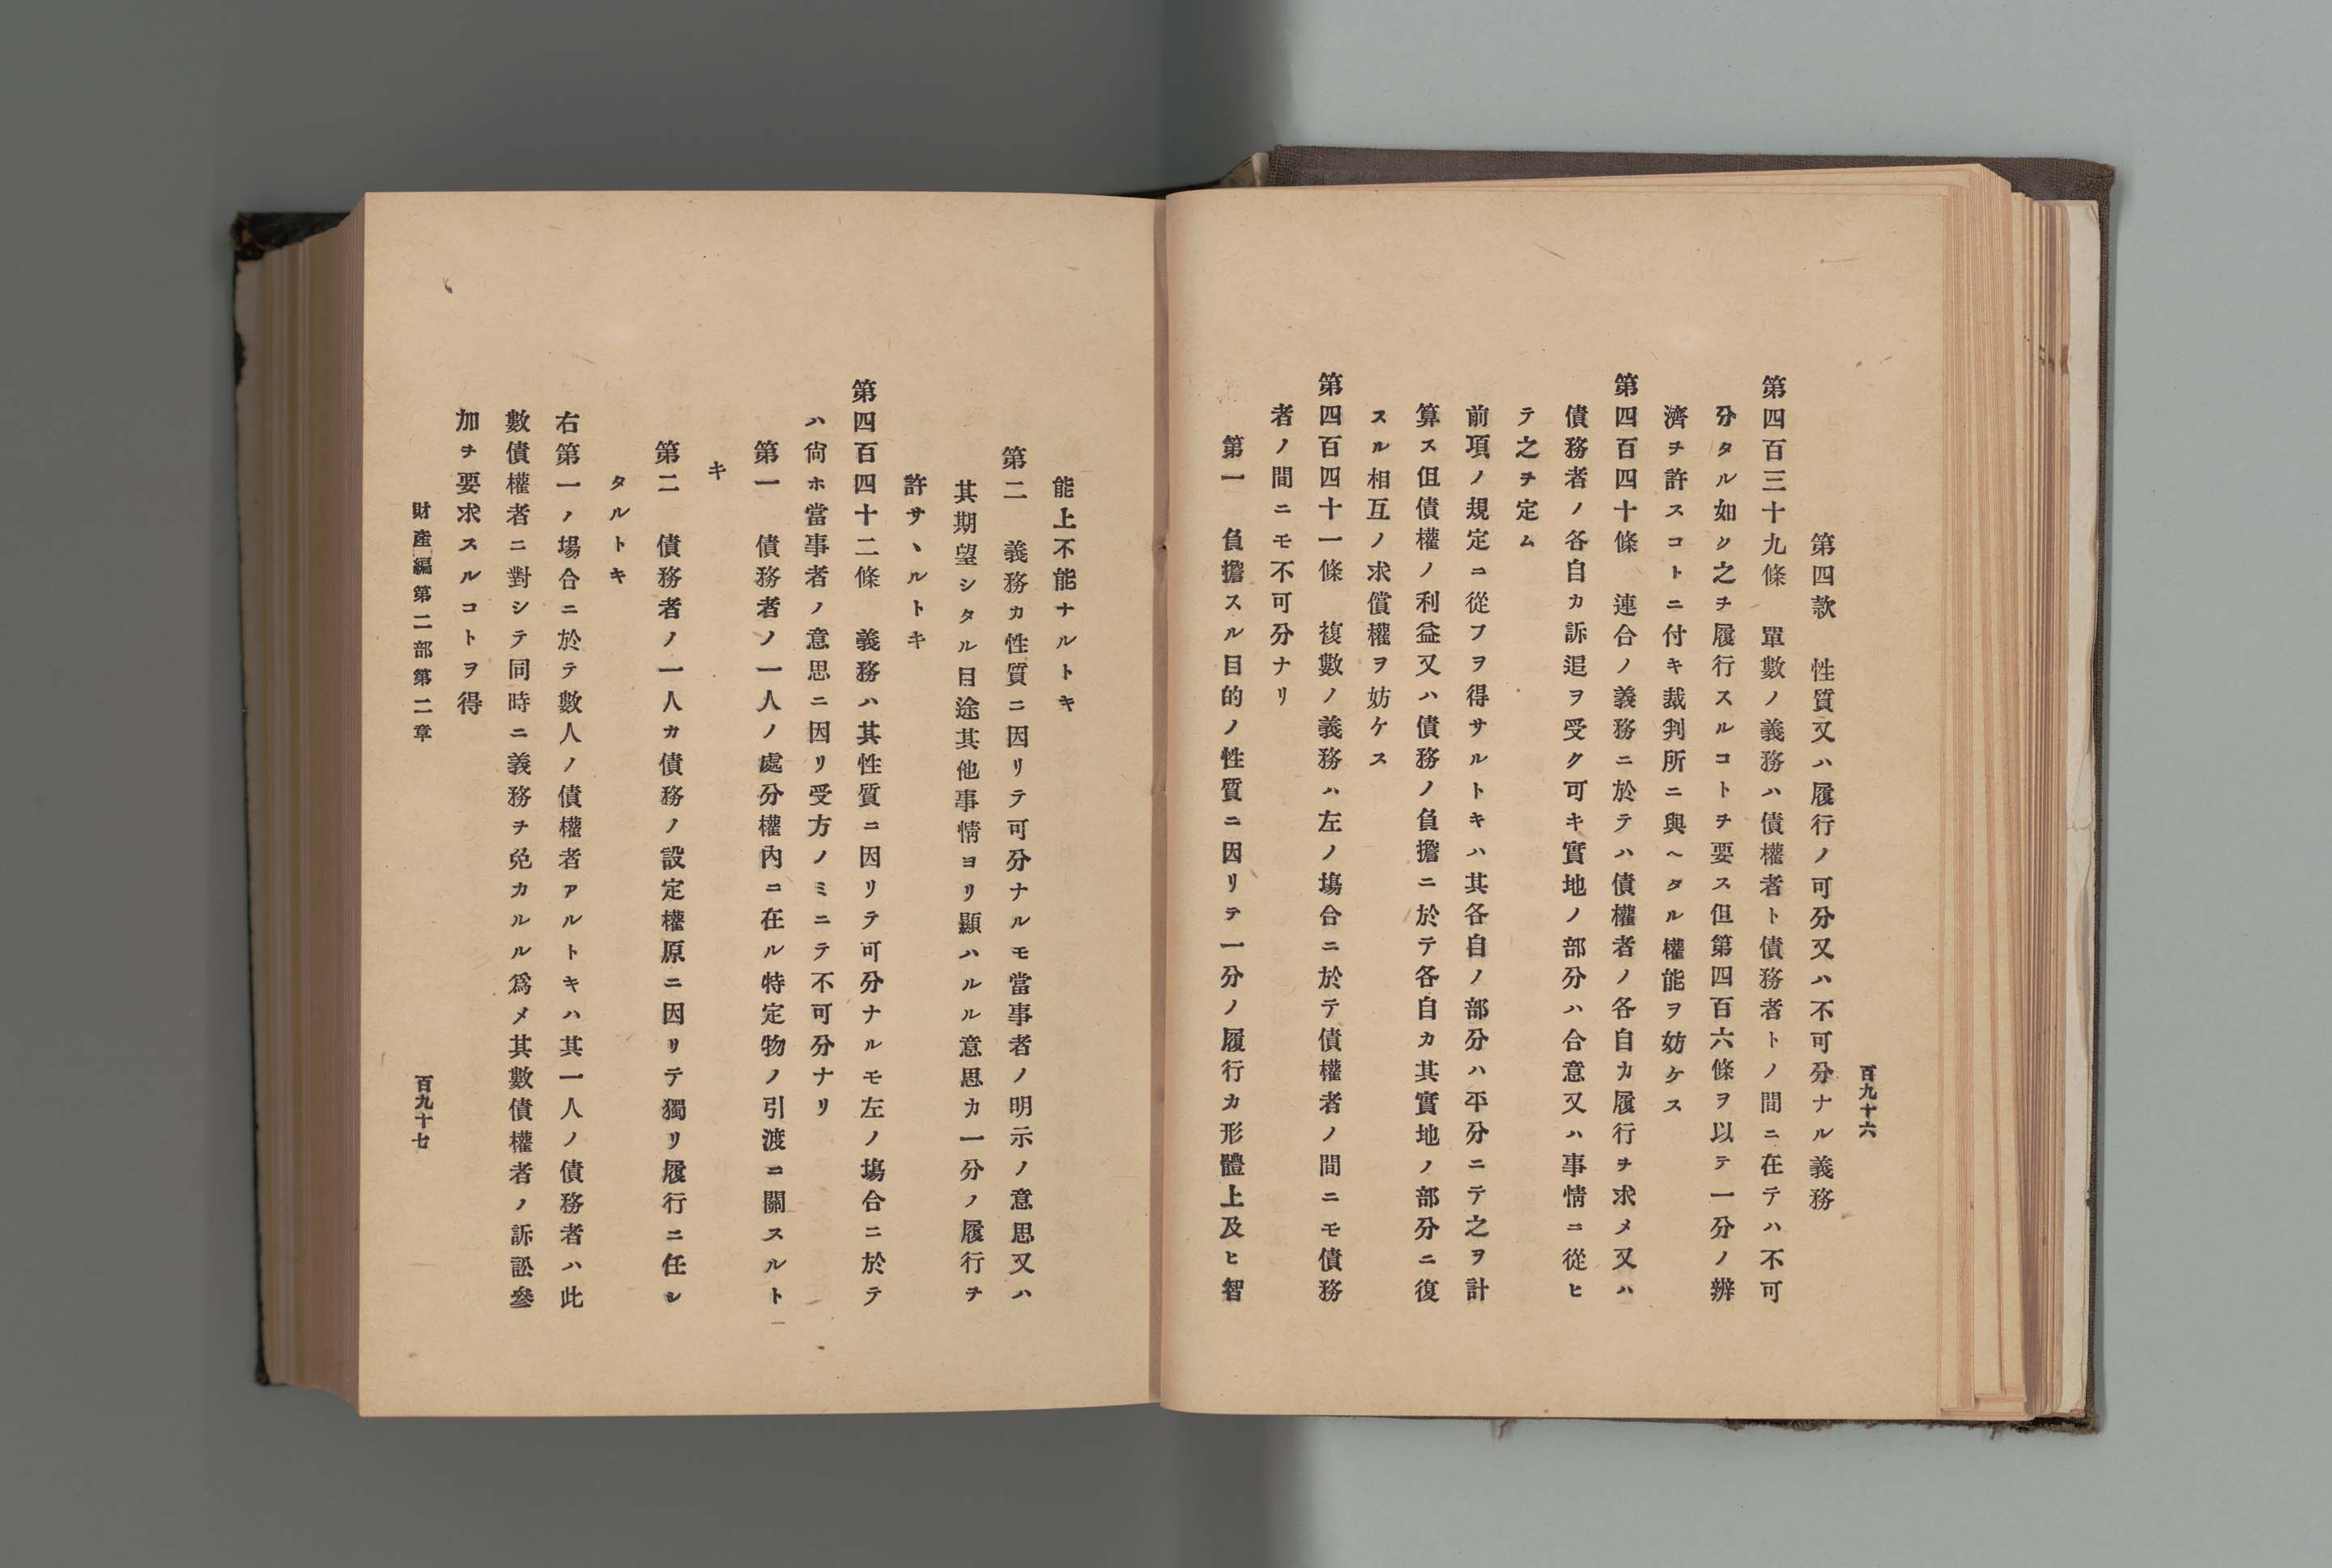 百九十六
第四款　性質又ハ履行ノ可分又ハ不可分ナル義務
第四百三十九條　單數ノ義務ハ債權者ト債務者トノ間ニ在テハ不可
分タル如ク之ヲ履行スルコトヲ要ス但第四百六條ヲ以テ一分ノ辨
濟ヲ許スコトニ付キ裁判所ニ與ヘタル權能ヲ妨ケス
第四百四十條　連合ノ義務ニ於テハ債權者ノ各自カ履行ヲ求メ又ハ
債務者ノ各自カ訴追ヲ受ク可キ實地ノ部分ハ合意又ハ事情ニ從ヒ
テ之ヲ定ム
前項ノ規定ニ從フヲ得サルトキハ其各自ノ部分ハ平分ニテ之ヲ計
算ス但債權ノ利益又ハ債務ノ負擔ニ於テ各自カ其實地ノ部分ニ復
スル相互ノ求償權ヲ妨ケス
第四百四十一條　複數ノ義務ハ左ノ塲合ニ於テ債權者ノ間ニモ債務
者ノ間ニモ不可分ナリ
第一　負擔スル目的ノ性質ニ因リテ一分ノ履行カ形體上及ヒ智
能上不能ナルトキ
第二　義務カ性質ニ因リテ可分ナルモ當事者ノ明示ノ意思又ハ
其期望シタル目途其他事情ヨリ顯ハルル意思カ一分ノ履行ヲ
許サヽルトキ
第四百四十二條　義務ハ其性質ニ因リテ可分ナルモ左ノ塲合ニ於テ
ハ尙ホ當事者ノ意思ニ因リ受方ノミニテ不可分ナリ
第一　債務者ノ一人ノ處分權內ニ在ル特定物ノ引渡ニ關スルト
キ
第二　債務者ノ一人カ債務ノ設定權原ニ因リテ獨リ履行ニ任シ
タルトキ
右第一ノ塲合ニ於テ數人ノ債權者アルトキハ其一人ノ債務者ハ此
數債權者ニ對シテ同時ニ義務ヲ免カルル爲メ其數債權者ノ訴訟參
加ヲ要求スルコトヲ得
財產編第二部第二章　百九十七